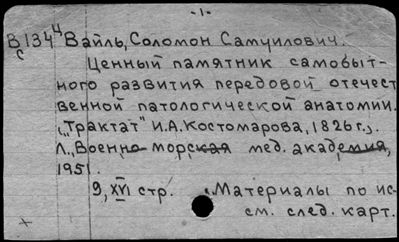 -1-
В 134 4 Вайль, Соломон Самуилович.
с
Ценный памятник самобыт-
ного развития передовой отечест
венной патологической анатомии.
("Трактат" И.А. Костомарова, 1826 г.).
Л., Военно морская мед. академия,
1951.
9, XVI стр. (Материалы по ис-
см. след. карт.